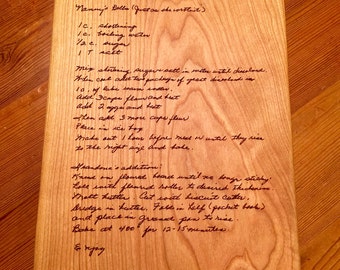 Nanny's Rolls (Just as she wrote it)
1 c. shortening
1 c. boiling water
1/2 c. sugar
1 T salt
Mix shortning, sugar & salt, in water until dissolved.
When cool add two package of yeast dissolved in
1 c. of luke warm water.
Add 3 cups flour and beat
Add 2 eggs and beat
Then add 3 more cups flour
Place in ice box
Make out 1 hour before need or until they rise
to the right size and bake.
addition:
Knead on floured board until no longer sticky.
Roll with floured roller to desired thickness
Melt butter. Cut with biscuit cutter,
dredge in butter. Fold in half (pocket book)
and place in greased pan to rise.
Bake at 400° for 12-15 minutes
Enjoy